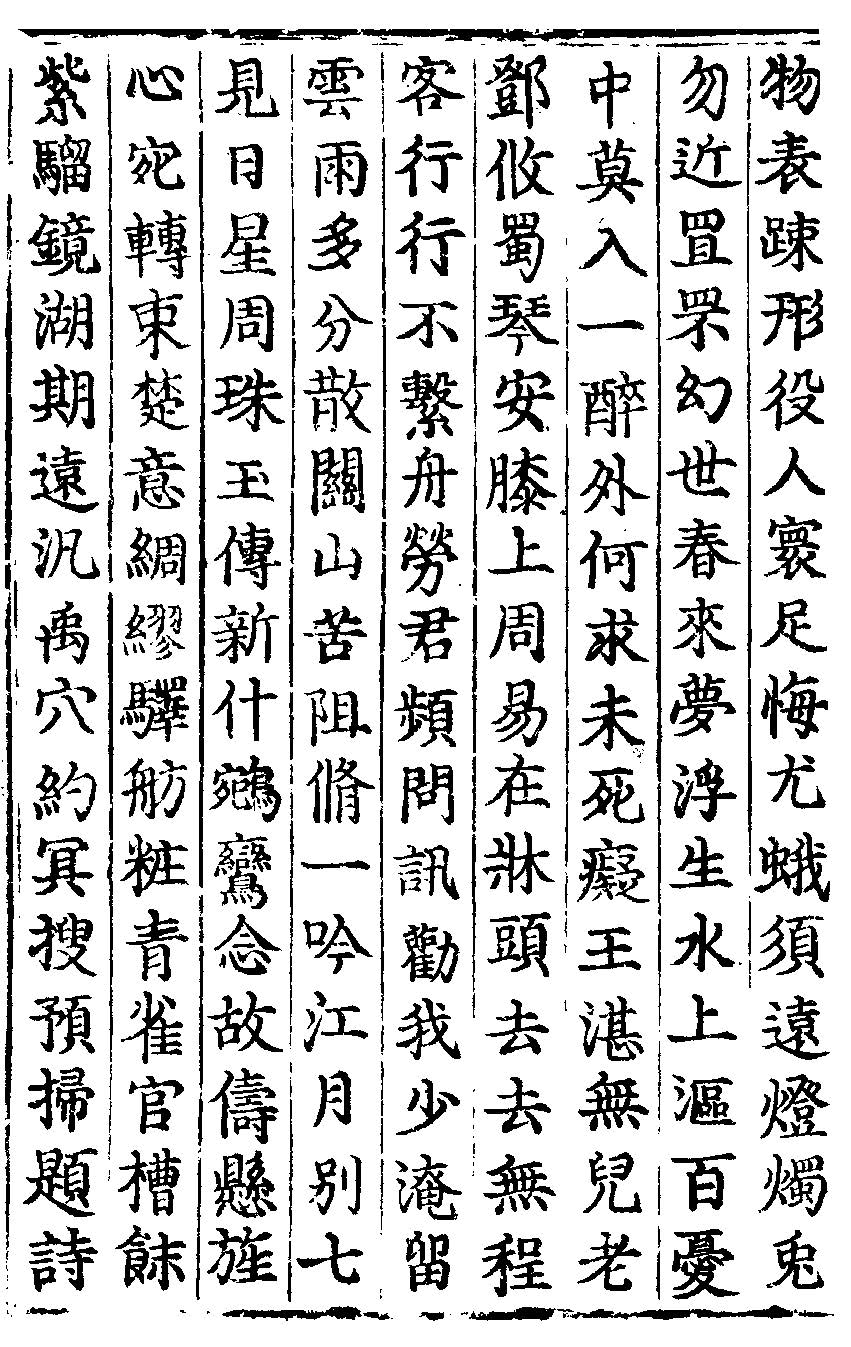 物表踈形役人寰足悔尤蛾須遠燈燭兎
勿近罝罘幻世春來夢浮生水上漚百憂
中莫入一醉外何求未死癡王湛無兒老
鄧攸蜀琴安膝上周易在牀頭去去無程
客行行不繫舟勞君頻問訊勸我少淹留
雲雨多分散關山苦阻脩一吟江月别七
見日星周珠玉傳新什鵷鸞念故儔懸旌
心宛轉束楚意綢繆驛舫粧青雀官槽餗
紫騮鏡湖期遠汎禹穴約冥搜預掃題詩